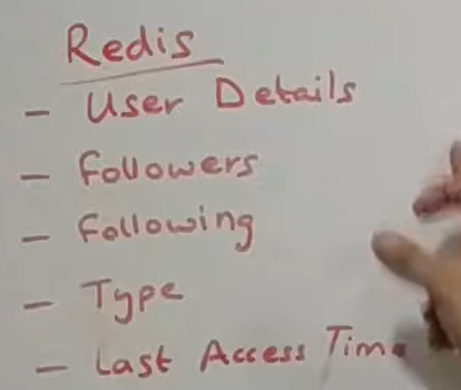 Redis
- User Details
- Followers
- Following
- Type
- Last Access Time